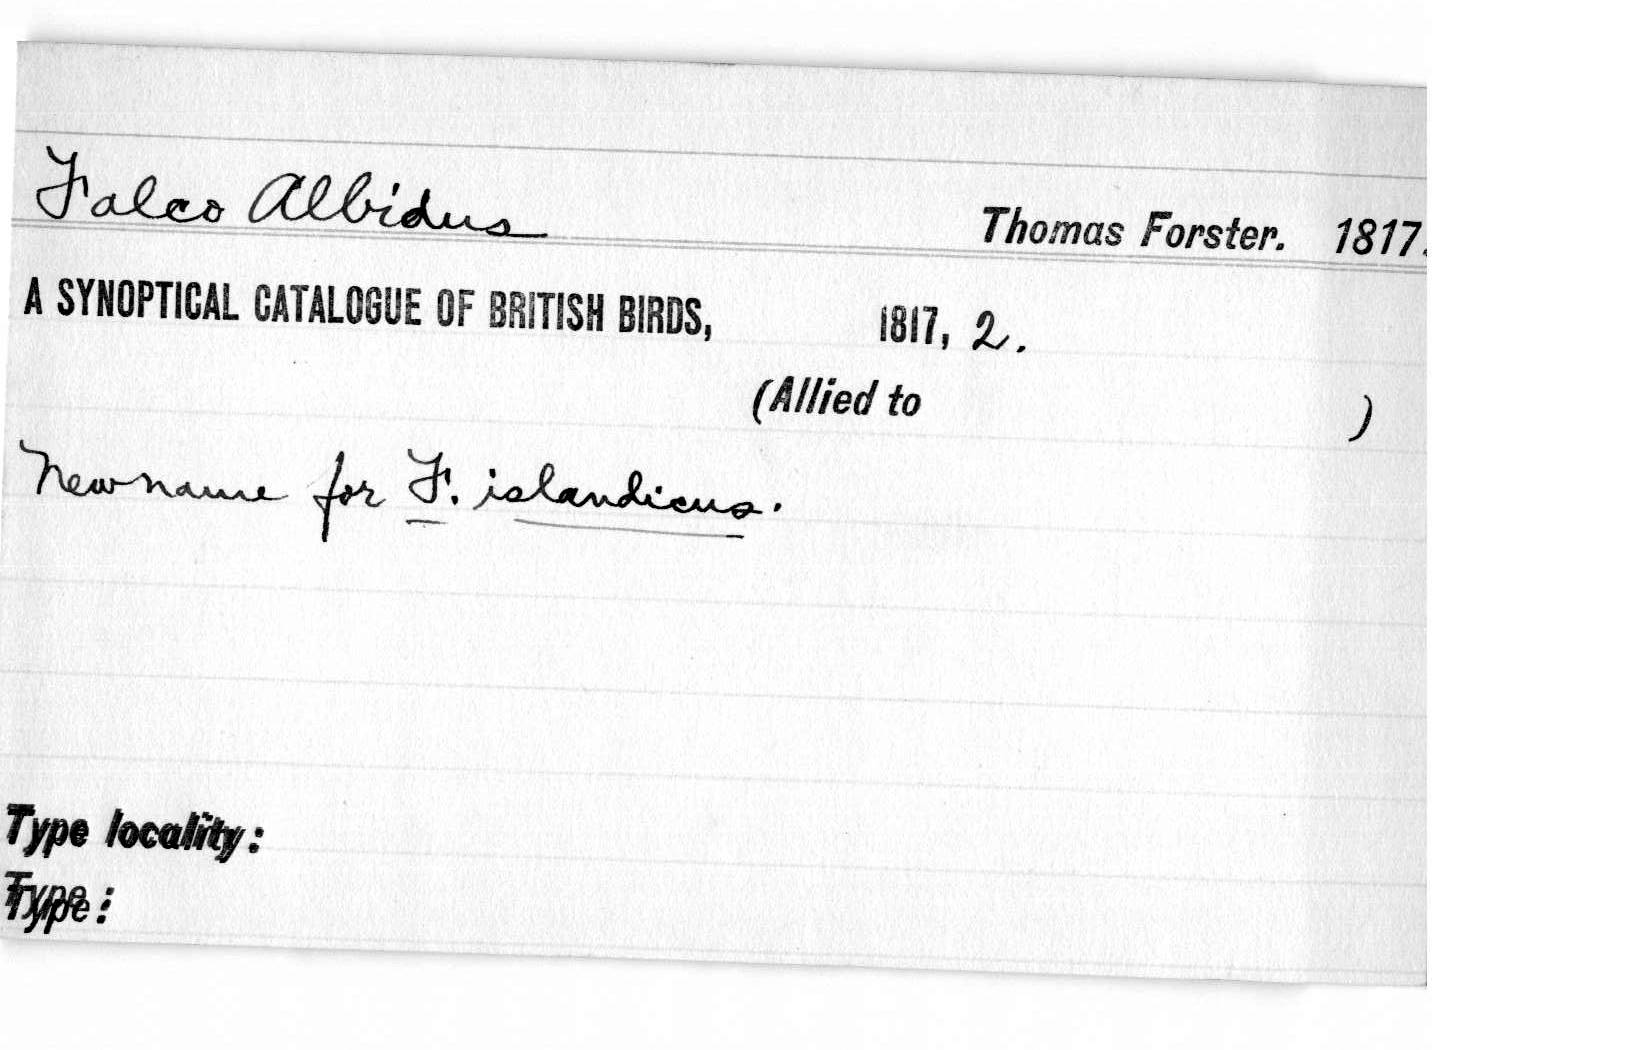 Falco Albidus Thomas Forster. 1817.
A SYNOPTICAL CATALOGUE OF BRITISH BIRDS, 1817, 2.
(Allied to )
New name for F. islandicus.
Type locality:
Type: